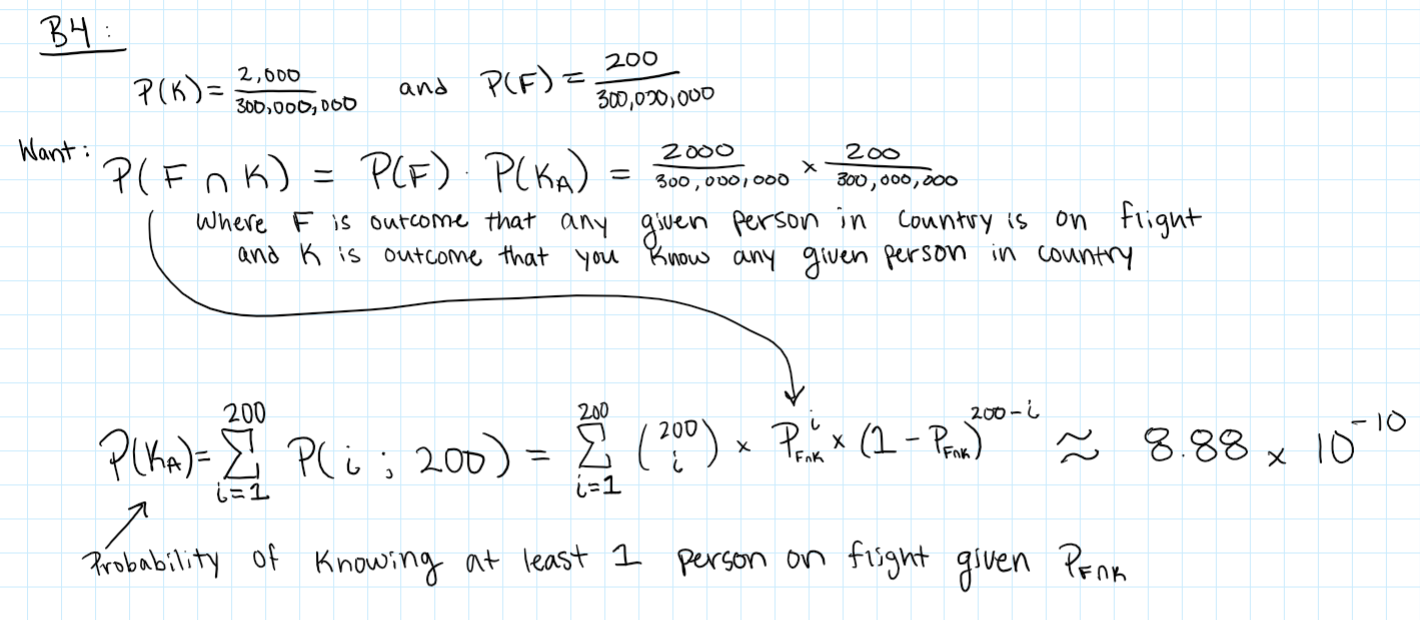 B4:
P(K) = 2,000/300,000,000 and P(F) = 200/300,000,000
Want: P(F ∩ K) = P(F) · P(K_A) = 2000/300,000,000 × 200/300,000,000
Where F is outcome that any given person in country is on flight
and K is outcome that you know any given person in country
P(K_A) = ∑_{i=1}^{200} P(i ; 200) = ∑_{i=1}^{200} (200 i) × P_{F∩K}^i × (1 - P_{F∩K})^{200-i} ≈ 8.88 × 10^{-10}
Probability of knowing at least 1 person on flight given P_{F∩K}